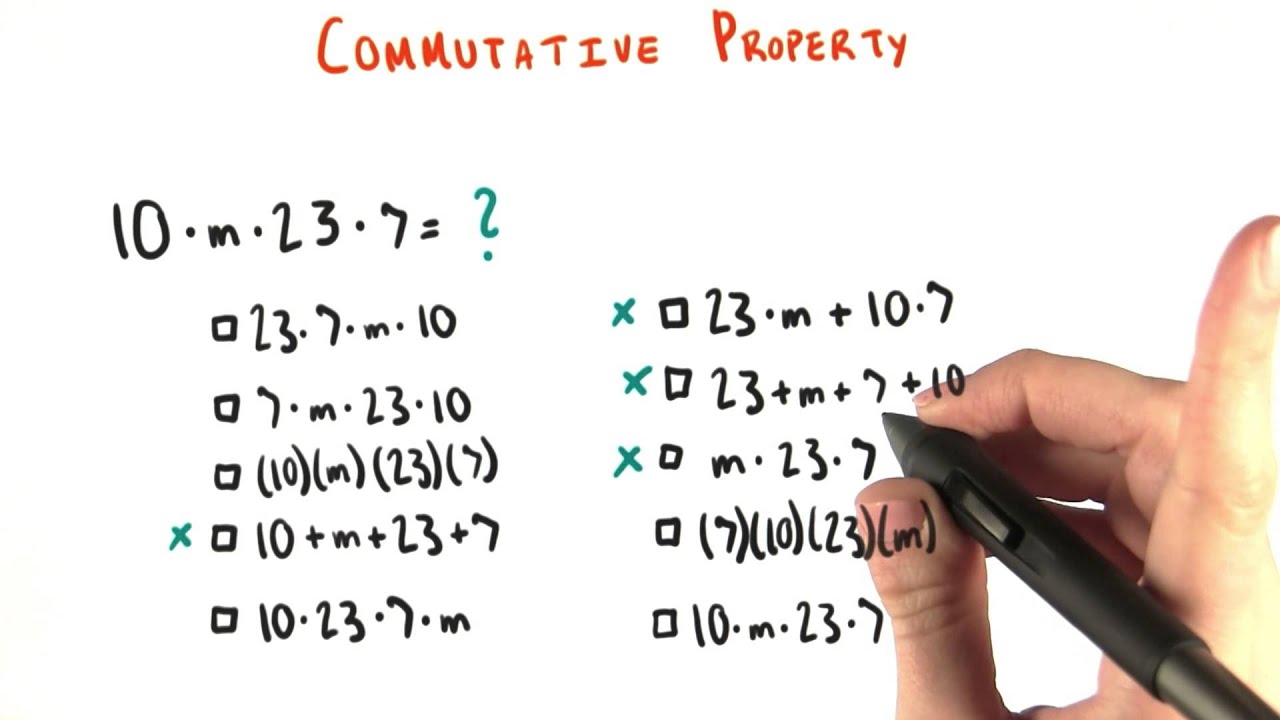 COMMUTATIVE PROPERTY
10·m·23·7= ?
□ 23·7·m·10
□ 7·m·23·10
□ (10)(m)(23)(7)
x □ 10+m+23+7
□ 10·23·7·m
x □ 23·m+10·7
x □ 23+m+7+10
x □ m·23·7
□ (7)(10)(23)(m)
□ 10·m·23·7